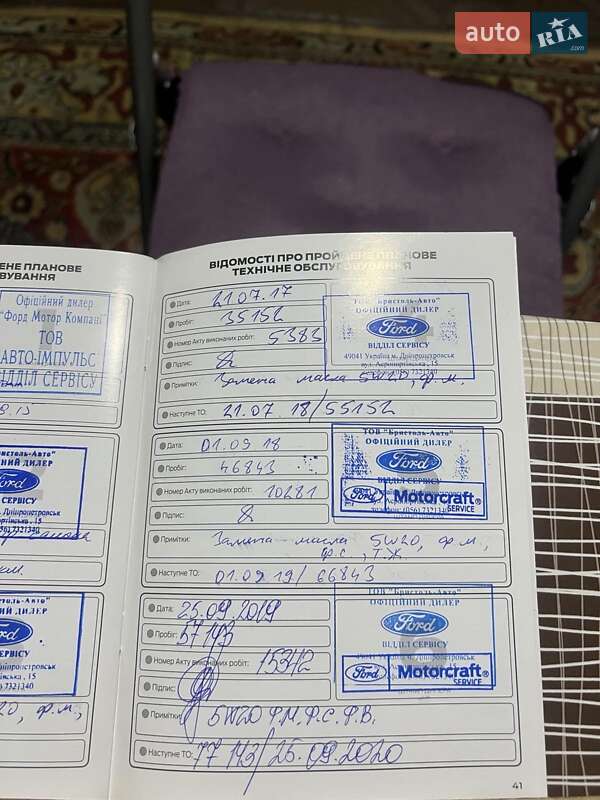 auto RIA.com
ЕНЕ ПЛАНОВЕ
ВУВАННЯ
Офіційний дилер
"Форд Мотор Компані"
ТОВ
АВТО-ІМПУЛЬС
ВІДДІЛ СЕРВІСУ
"Бристоль-Авто"
ЙНИЙ ДИЛЕР
Ford
СЕРВІСУ
м. Дніпропетровськ
7321340
ь-Авто"
Й ДИЛЕР
СЕРВІСУ
7321340
ВІДОМОСТІ ПРО ПРОЙДЕНЕ ПЛАНОВЕ
ТЕХНІЧНЕ ОБСЛУГОВУВАННЯ
Дата: 21.07.17
Пробіг: 35152
Номер Акту виконаних робіт: 5383
Підпис:
Примітки: Замена масла 5W20, ф.м.
Наступне ТО: 21.07.18/55152
ТОВ "Бристоль-Авто"
ОФІЦІЙНИЙ ДИЛЕР
Ford
ВІДДІЛ СЕРВІСУ
49041 Україна м. Дніпропетровськ
Дата: 01.09 18
Пробіг: 46843
Номер Акту виконаних робіт: 10281
Підпис:
Примітки: Замена масла 5W20, ф.м.,
ф.с., т.ж.
Наступне ТО: 01.09.19/66843
ТОВ "Бристоль-Авто"
ОФІЦІЙНИЙ ДИЛЕР
Ford
Ford Motorcraft®
SERVICE
телефон: (056) 7321340
Дата: 25.09 2019
Пробіг: 57143
Номер Акту виконаних робіт: 15342
Підпис:
Примітки: 5W20 Ф.М.Ф.С.Ф.В.
Наступне ТО: 77 143/25.09.2020
ТОВ "Бристоль-Авто"
ОФІЦІЙНИЙ ДИЛЕР
Ford
ВІДДІЛ СЕРВІСУ
Ford Motorcraft®
SERVICE
41